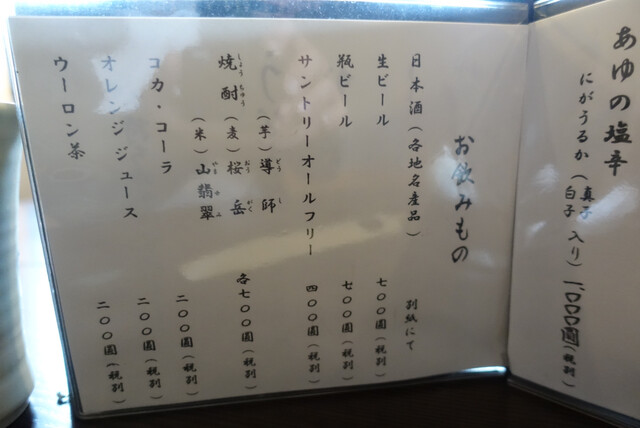 あゆの塩辛
にがうるか(真子 白子 入り) 一、〇〇〇圓(税別)
お飲みもの
日本酒(各地名産品) 別紙にて
生ビール 七〇〇圓(税別)
瓶ビール 七〇〇圓(税別)
サントリーオールフリー 四〇〇圓(税別)
焼酎 しょうちゅう
(芋)導師 どうし
(麦)桜岳 おうがく
(米)山翡翠 やませみ
各七〇〇圓(税別)
コカ・コーラ 二〇〇圓(税別)
オレンジジュース 二〇〇圓(税別)
ウーロン茶 二〇〇圓(税別)